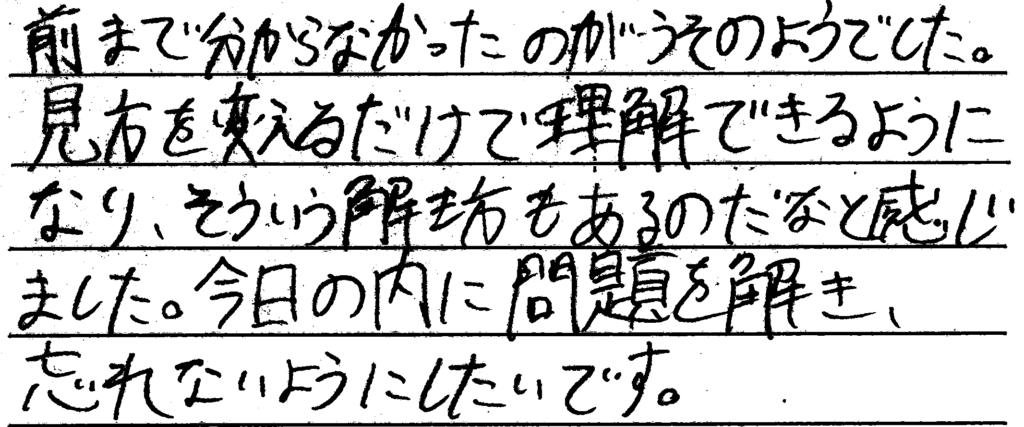 前まで分からなかったのがうそのようでした。
見方を変えるだけで理解できるように
なり、そういう解き方もあるのだなと感じ
ました。今日の内に問題を解き、
忘れないようにしたいです。